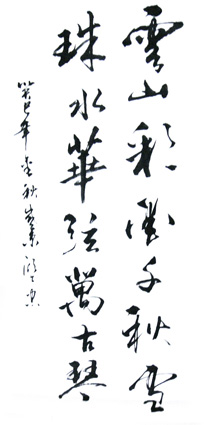 雲山彩衣千秋雪
珠水華弦萬古琴
癸巳年金秋